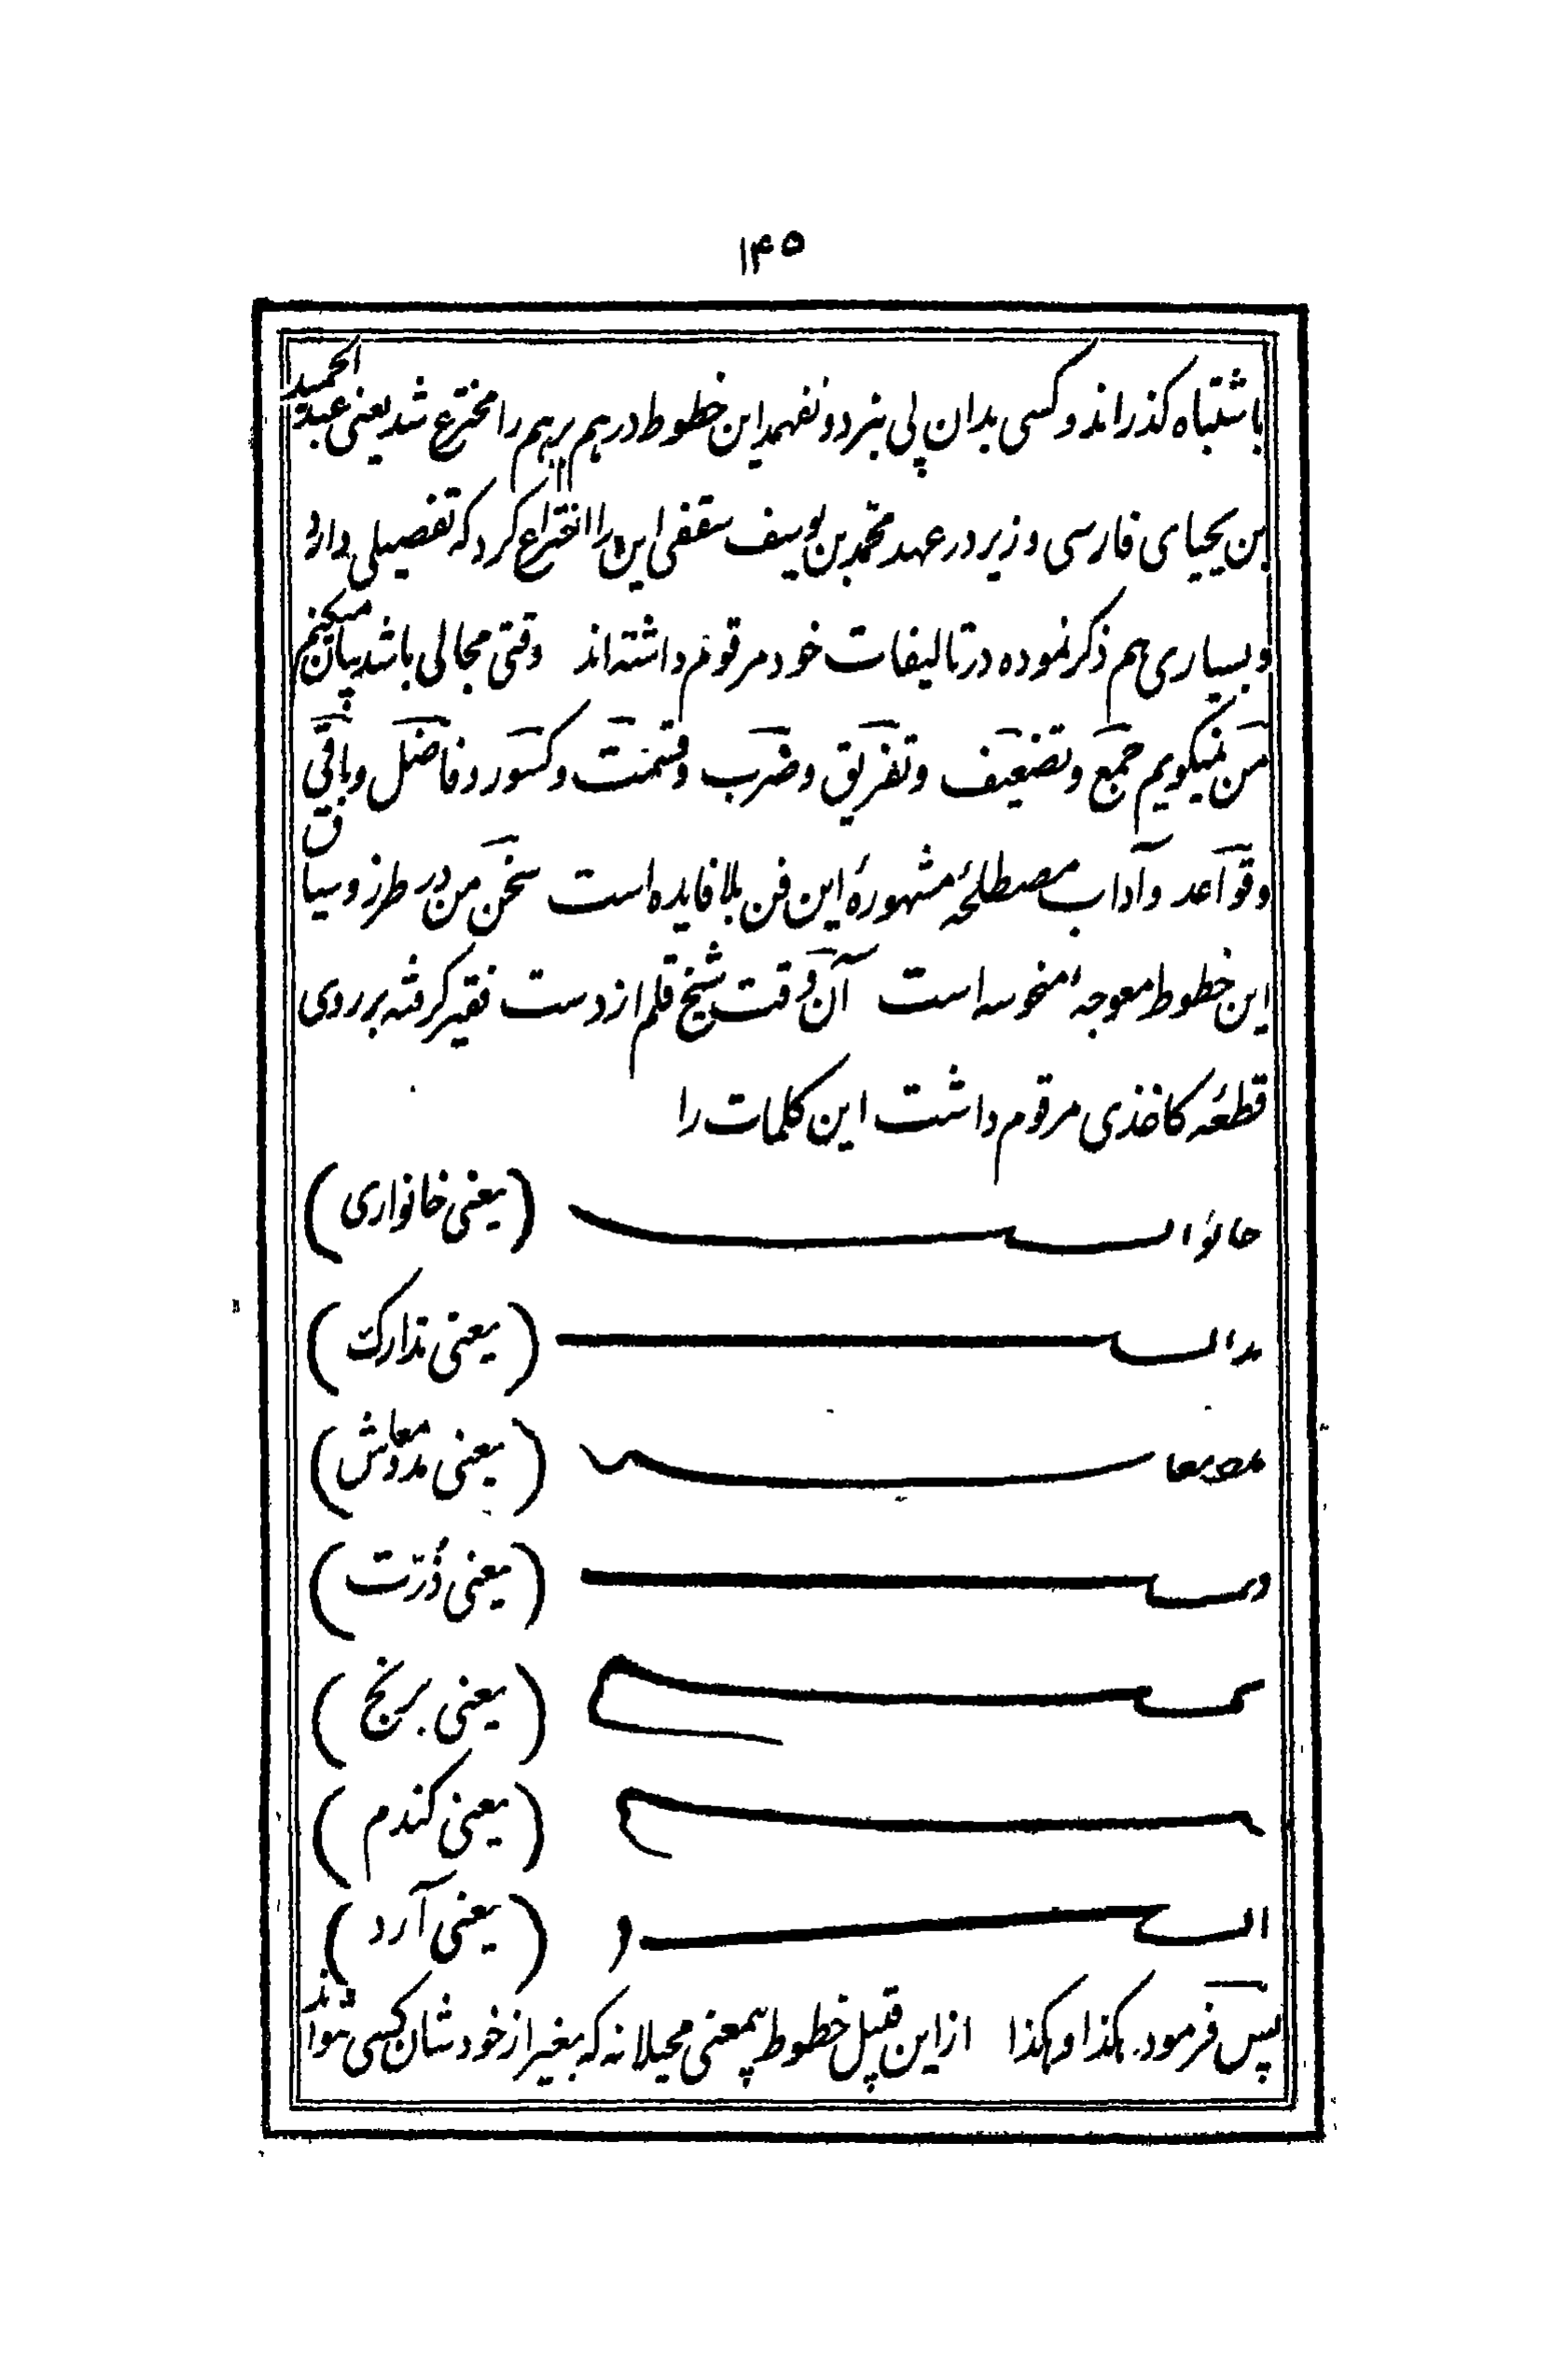 ۱۴۵
باشتباه کذراند و کسی بدان پی نبرد و نفهمد این خطوط درهم برهم را مخترع شد یعنی عبد الحمید
بن یحیای فارسی وزیر در عهد محمد بن یوسف سقفی این را اختراع کرد که تفصیلی دارد
و بسیاری هم ذکر نموده در تالیفات خود مرقوم داشته‌اند وقتی مجالی باشد بیان میکنیم
من نمیکویم جمع و تضعیف و تفریق و ضرب و قسمت و کسور و فاضل و باقی
و قواعد و آداب مصطلحهٔ مشهورهٔ این فن بلا فایده است سخن من در طرز و سیاق
این خطوط معوجهٔ منحوسه است آن وقت شیخ قلم از دست فقیر کرفته بر روی
قطعهٔ کاغذی مرقوم داشت این کلمات را
(یعنی خانواری)
(یعنی تدارک)
(یعنی مدد معاش)
(یعنی ذُرّت)
(یعنی برنج)
(یعنی کندم)
(یعنی آرد)
پس فرمود هکذا و هکذا از این قبیل خطوط بیمعنی محیلانه که بغیر از خودشان کسی نتواند